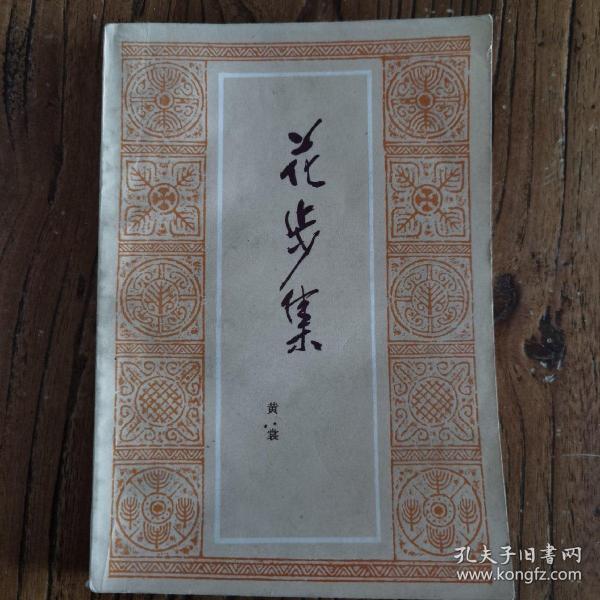 花步集
黄裳
孔夫子旧书网
www.kongfz.com